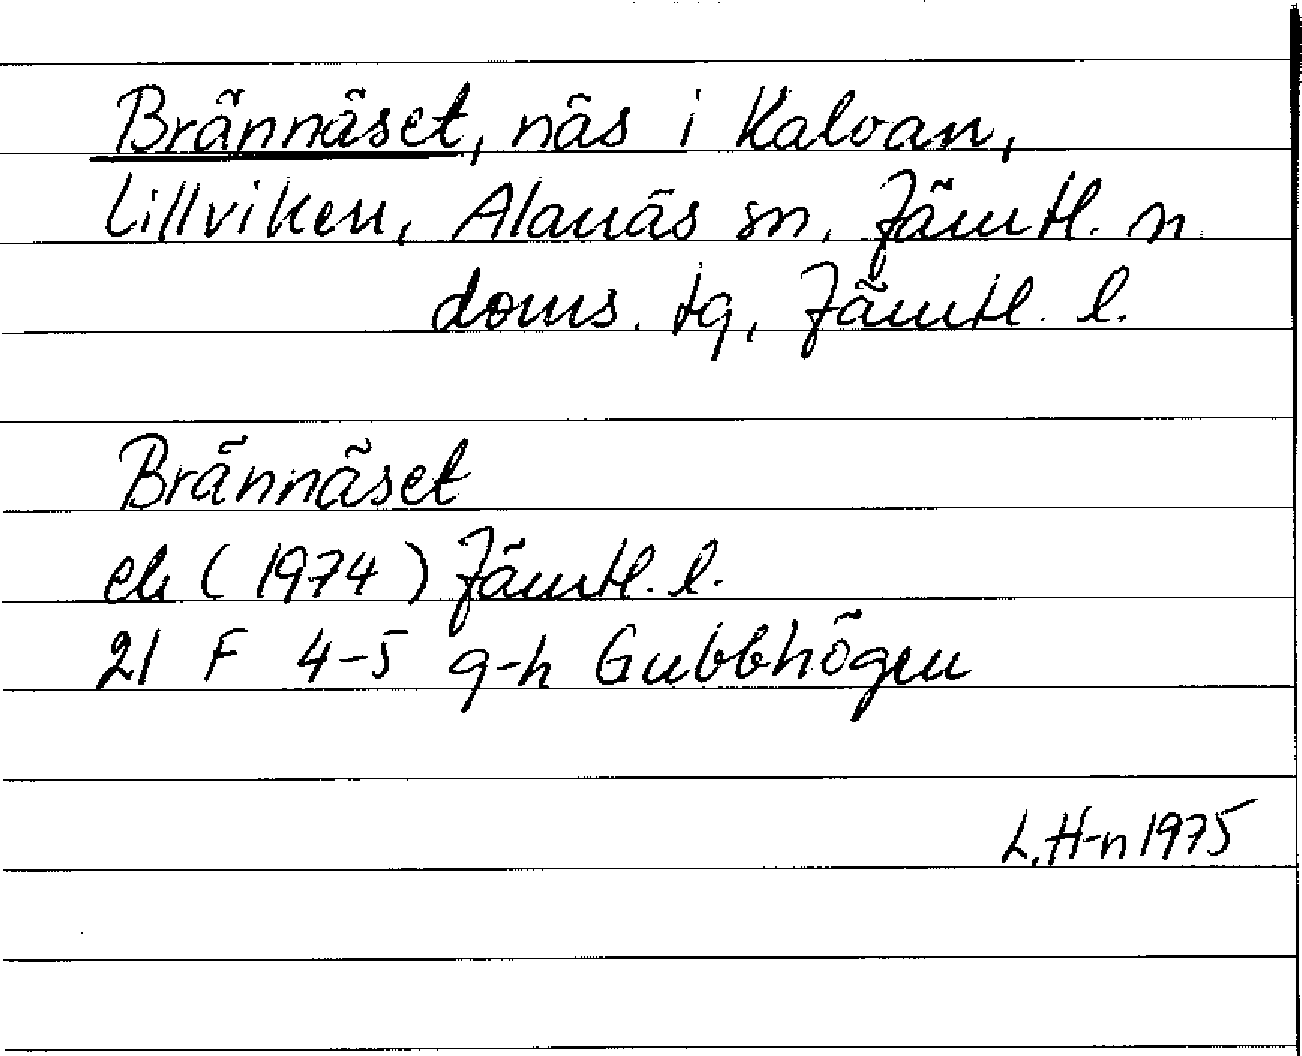 Brännäset, näs i Kalvan,
Lillviken, Alanäs sn, Jämtl. n.
doms. tg, Jämtl. l.
Brännäset
ek (1974) Jämtl. l.
21 F 4-5 g-h Gubbhögen
L. H-n 1975